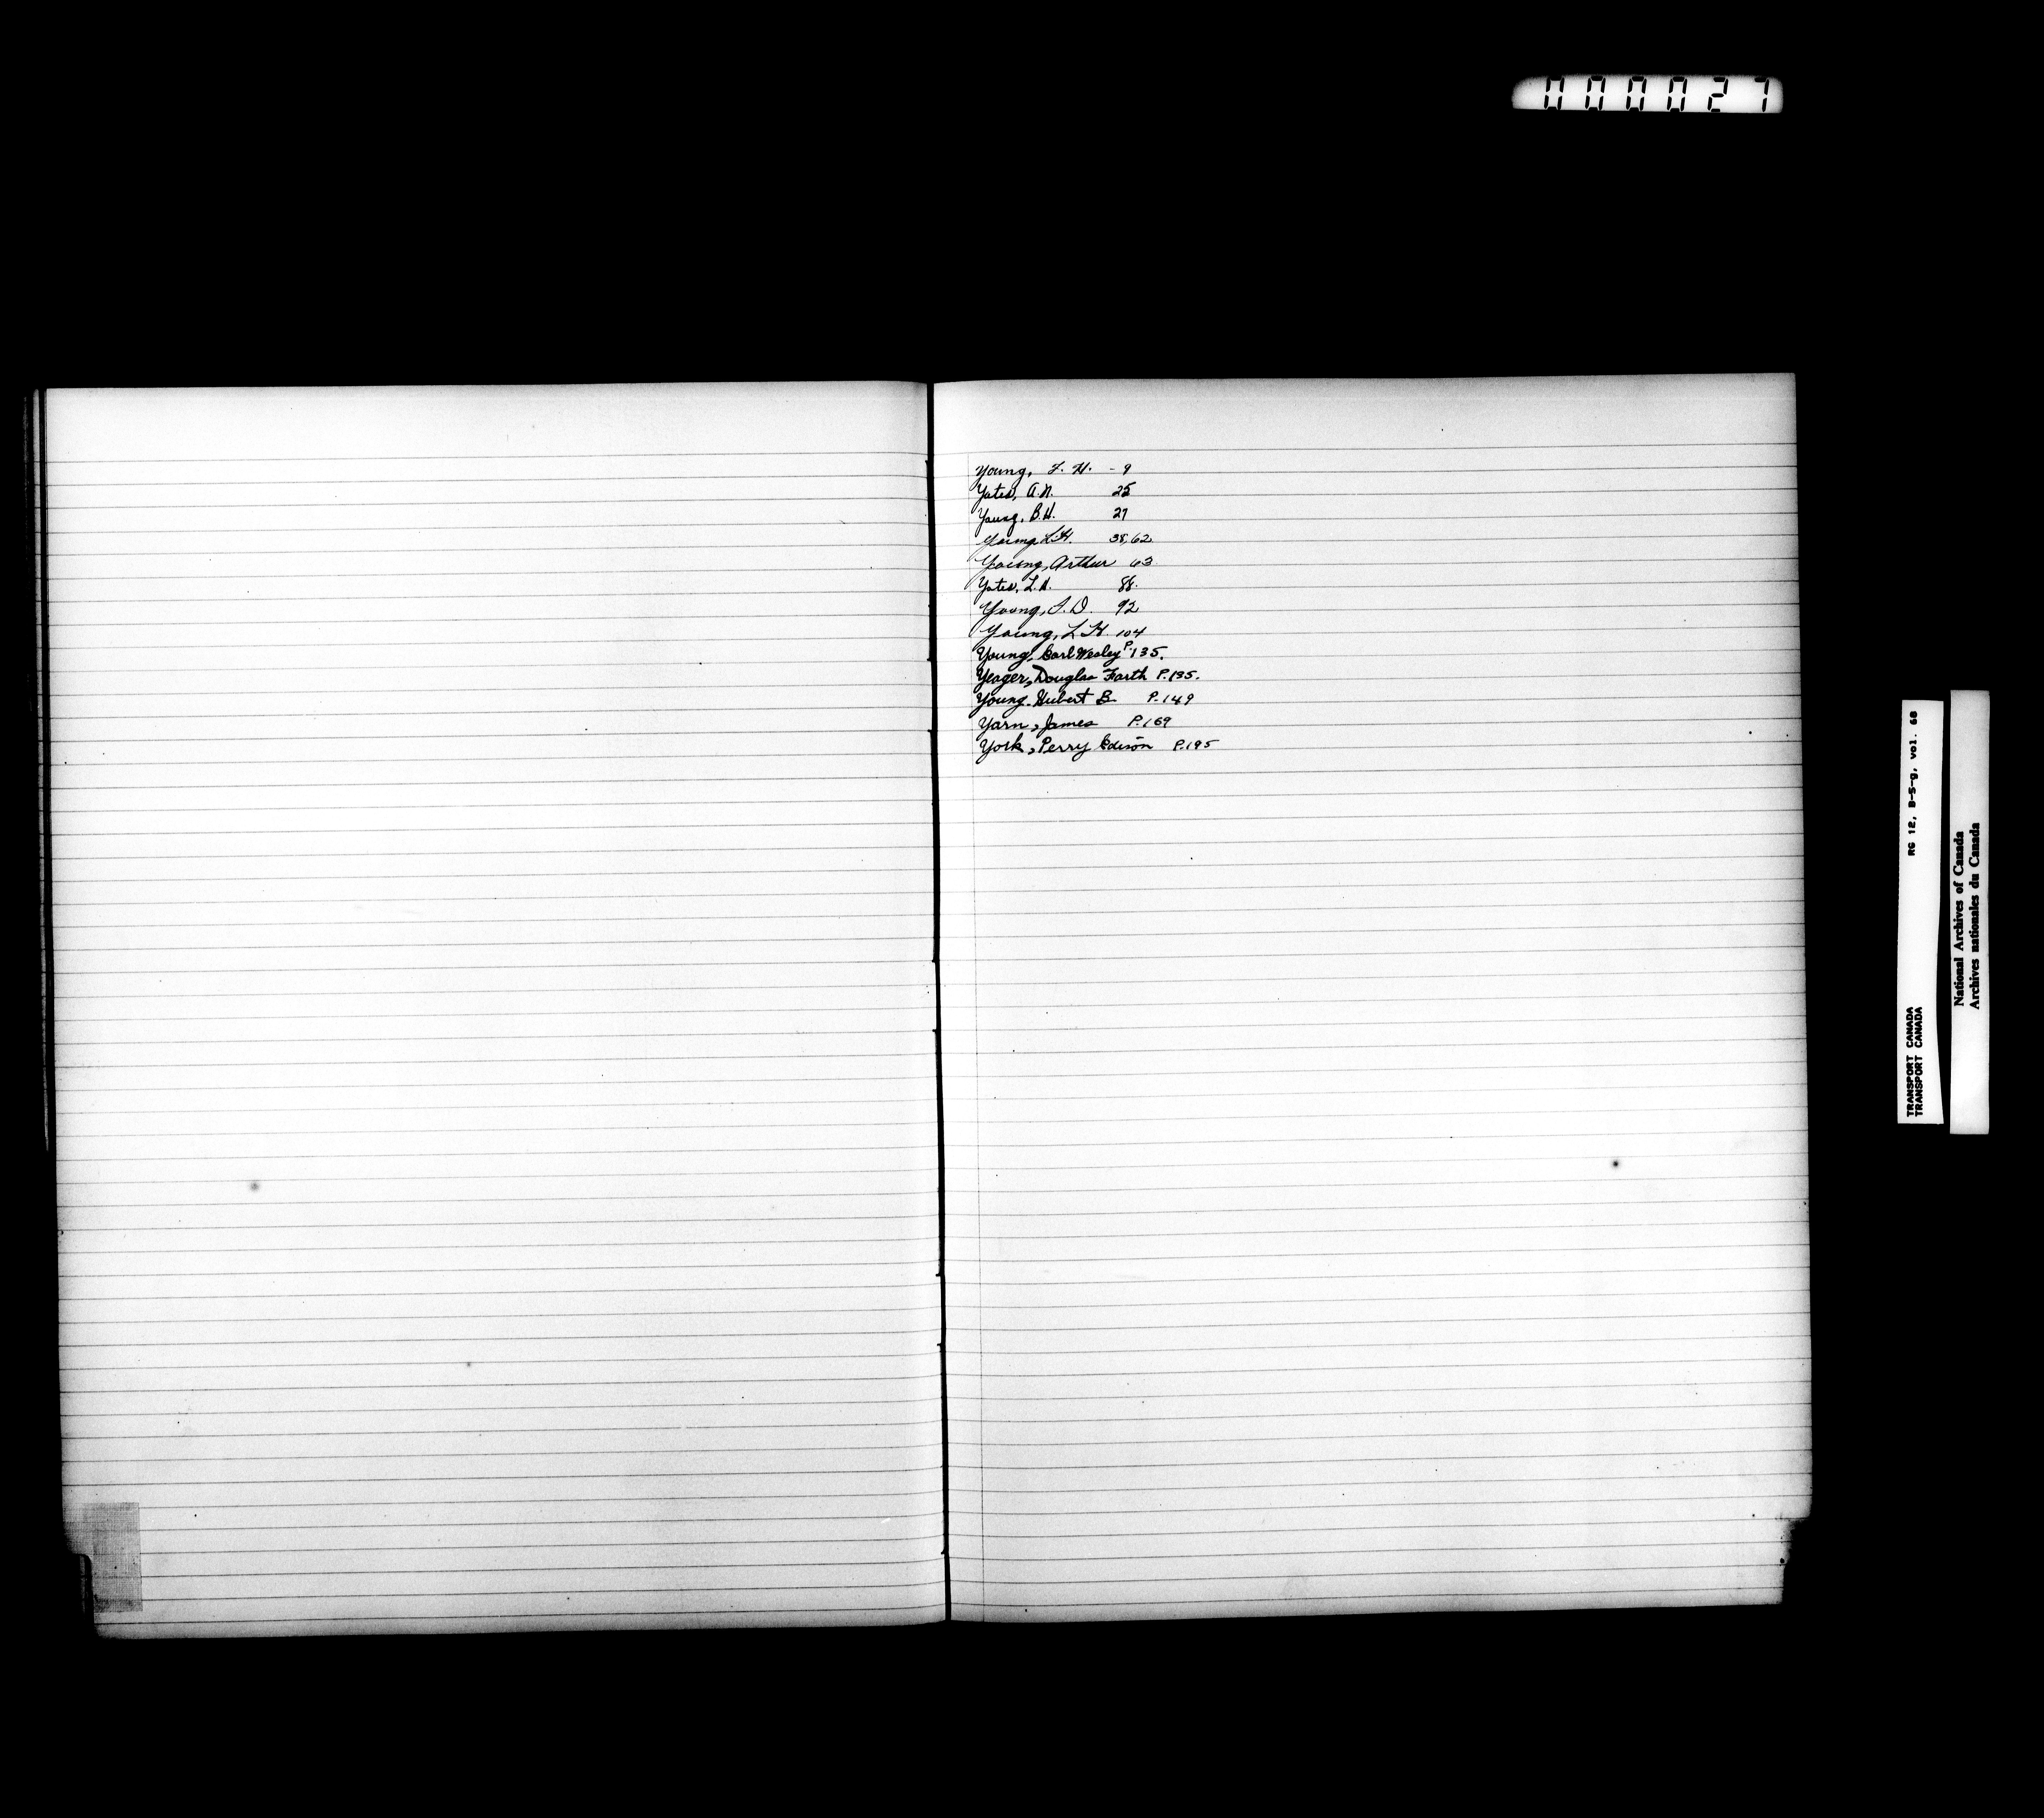 000027
Young, L. H. - 9
Yates, A.N. 25
Young, B.H. 27
Young L.H. 38,62
Young, Arthur 63
Yates, L.A. 88.
Young, D. 92
Young, L H. 104
Young, Carl Wesley P.135.
Yeager, Douglas Farth P.135.
Young. Hubert B P.149
Yarn, James P.169
York, Perry Edison P.195
RG 12, B-5-g, vol. 68
TRANSPORT CANADA
TRANSPORT CANADA
National Archives of Canada
Archives nationales du Canada